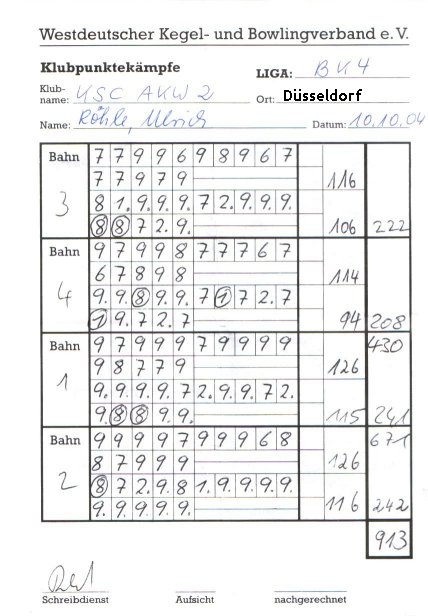 Westdeutscher Kegel- und Bowlingverband e.V.
Klubpunktekämpfe LIGA: BK4
Klub-
name: KSC AKW 2 Ort: Düsseldorf
Name: Röhle, Ulrich Datum: 10.10.04
Bahn 7 7 9 9 6 9 8 9 6 7
7 7 9 7 9 116
3 8 1. 9. 9. 9. 7 2. 9. 9. 9.
8 8 7 2. 9. 106 222
Bahn 9 7 9 9 8 7 7 7 6 7
6 7 8 9 8 114
4 9. 9. 8 9. 9. 7 1 7 2. 7
1 9. 7 2. 7 94 208
Bahn 9 7 9 9 9 7 9 9 9 9 430
9 8 7 7 9 126
1 9. 9. 9. 9. 7 2. 9. 9. 7 2.
9. 8 8 9. 9. 115 241
Bahn 9 9 9 9 7 9 9 9 6 8 671
8 7 9 9 9 126
2 8 7 2. 9. 8 1. 9. 9. 9. 9.
9. 9. 9. 9. 9. 116 242
913
Schreibdienst Aufsicht nachgerechnet